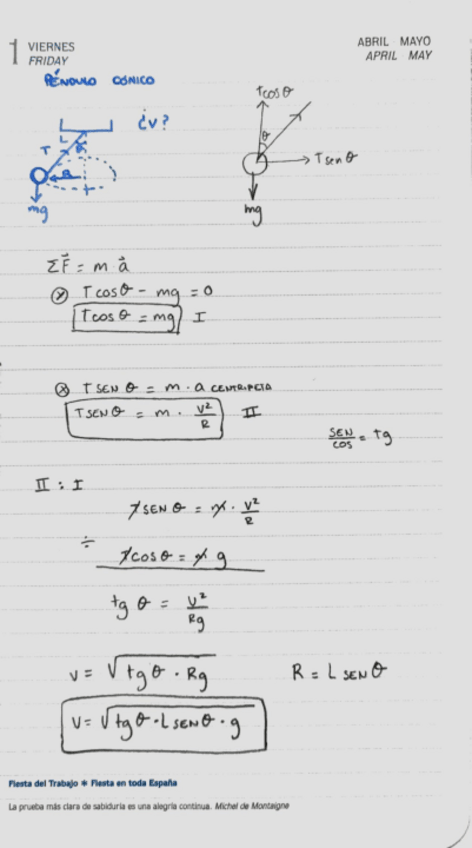 1 VIERNES
FRIDAY
ABRIL MAYO
APRIL MAY
PÉNDULO CÓNICO
¿v?
L
T
a
mg
Tcosθ
θ
T senθ
mg
ΣF⃗ = m a⃗
Ⓨ Tcosθ - mg = 0
Tcosθ = mg I
Ⓧ T SEN θ = m · a CENTRIPETA
T SEN θ = m · V²/R II
SEN/COS = tg
II : I
T SEN θ = m · V²/R
÷
T cosθ = m g
tg θ = V²/Rg
v = √tgθ · Rg
R = L SENθ
v = √tgθ · L SENθ · g
Fiesta del Trabajo * Fiesta en toda España
La prueba más clara de sabiduría es una alegría continua. Michel de Montaigne